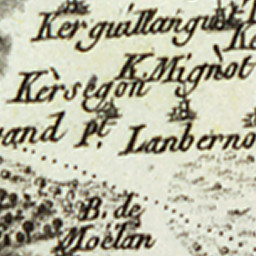 Kerguillangui
K. Mignòt
Kèrsegon
and Pt. Lanberno
B. de
Moelan